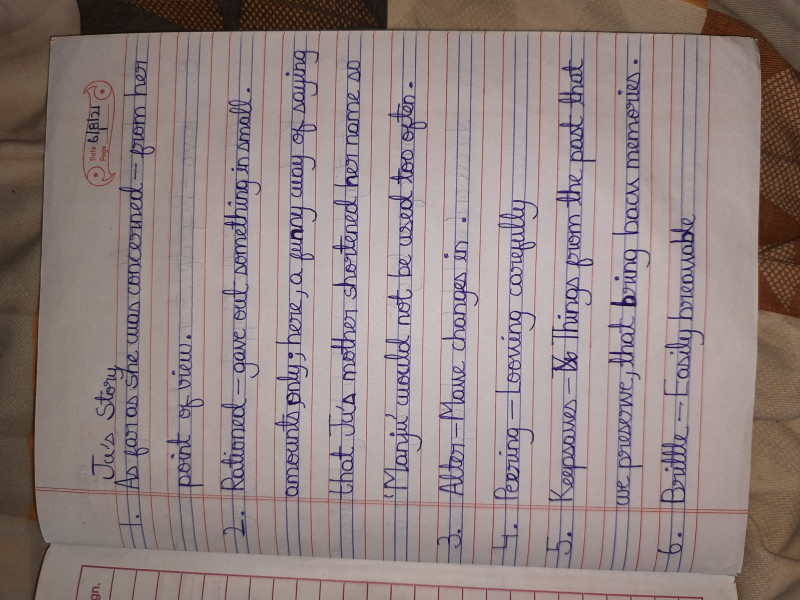 Date 6/8/21
Page
Ju's Story
1. As far as she was concerned – from her
point of view.
2. Rationed – gave out something in small
amounts, only; here, a funny way of saying
that Ju's mother shortened her name so
'Manju' would not be used too often.
3. Alter – Make changes in.
4. Peering – Looking carefully
5. Keepsakes – Things from the past that
we preserve, that bring back memories.
6. Brittle – Easily breakable
gn.